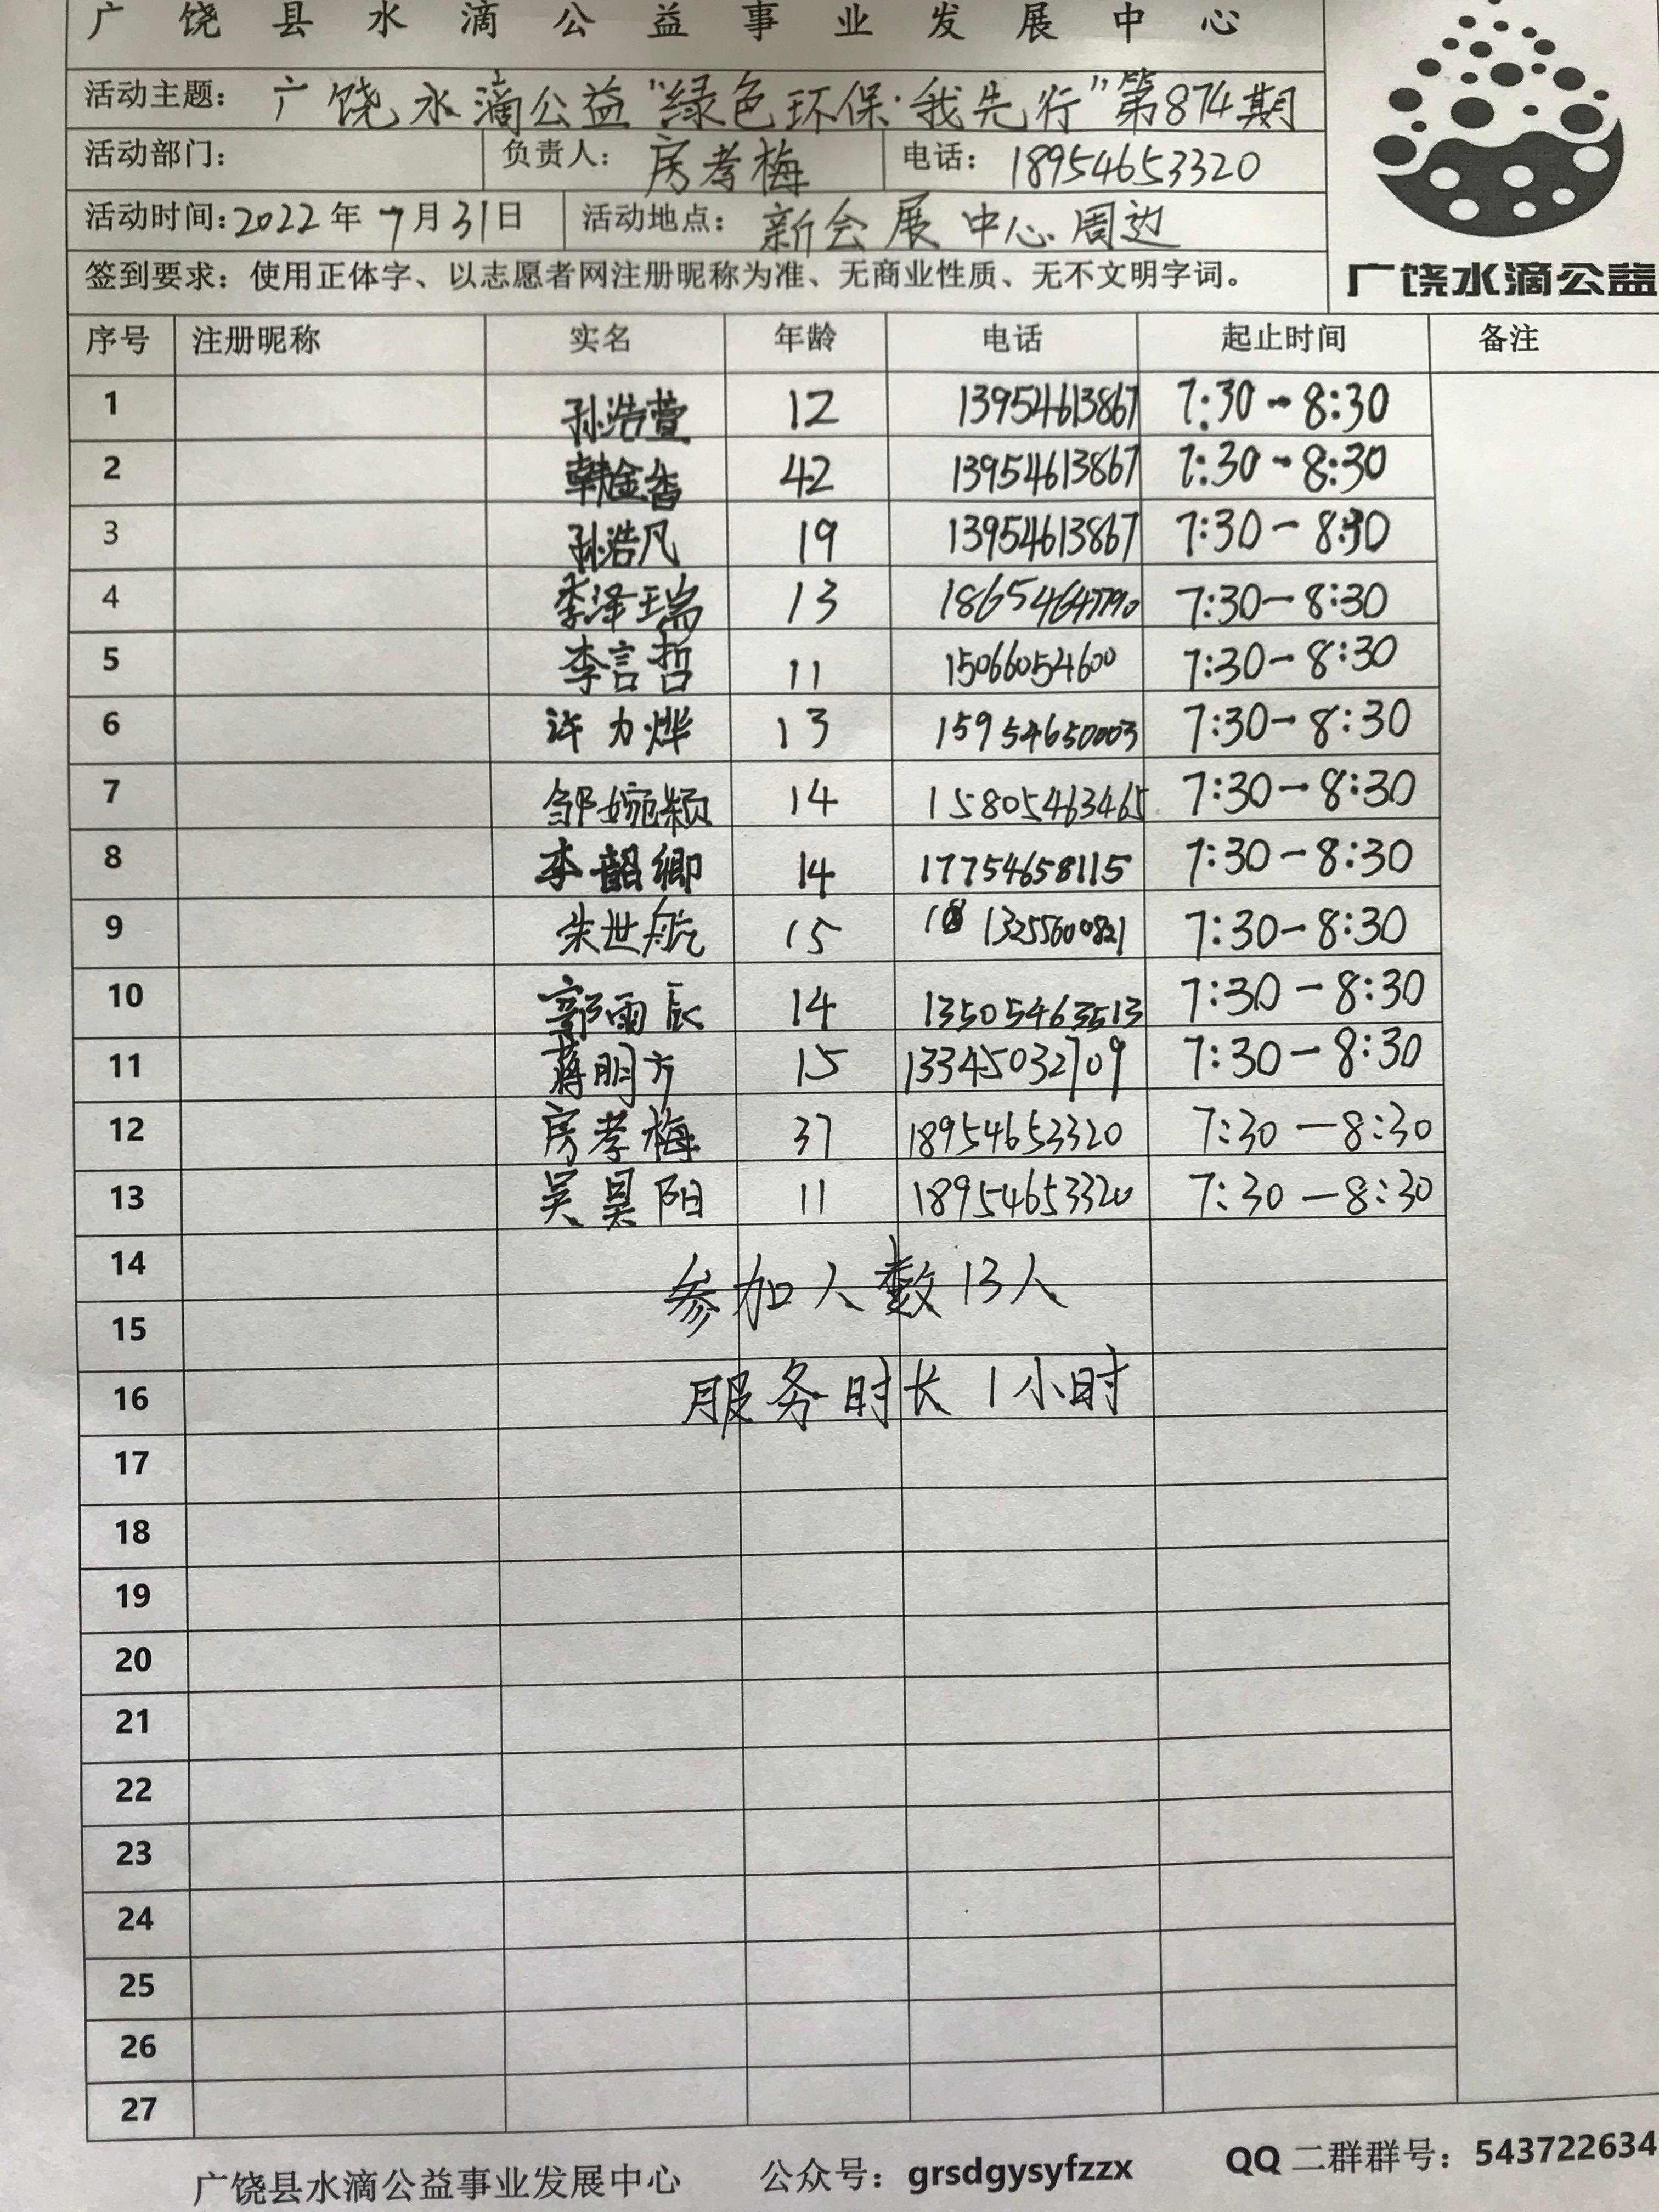 广饶县水滴公益事业发展中心
活动主题：广饶水滴公益"绿色环保·我先行"第874期
活动部门： 负责人：房孝梅 电话：18954653320
活动时间：2022年7月31日 活动地点：新会展中心周边
签到要求：使用正体字、以志愿者网注册昵称为准、无商业性质、无不文明字词。
广饶水滴公益
序号 注册昵称 实名 年龄 电话 起止时间 备注
1 孙浩萱 12 13954613867 7:30-8:30
2 韩金香 42 13954613867 7:30-8:30
3 孙浩凡 19 13954613867 7:30-8:30
4 李泽瑞 13 7:30-8:30
5 李言哲 11 15066054600 7:30-8:30
6 许力烨 13 15954650003 7:30-8:30
7 邹婉颖 14 15805463465 7:30-8:30
8 李韶卿 14 17754658115 7:30-8:30
9 朱世航 15 13255600821 7:30-8:30
10 郭雨辰 14 13505463513 7:30-8:30
11 蒋明方 15 13345032709 7:30-8:30
12 房孝梅 37 18954653320 7:30-8:30
13 吴昊阳 11 18954653320 7:30-8:30
14
参加人数13人
15
16 服务时长1小时
17
18
19
20
21
22
23
24
25
26
27
广饶县水滴公益事业发展中心 公众号：grsdgysyfzzx QQ二群群号：543722634